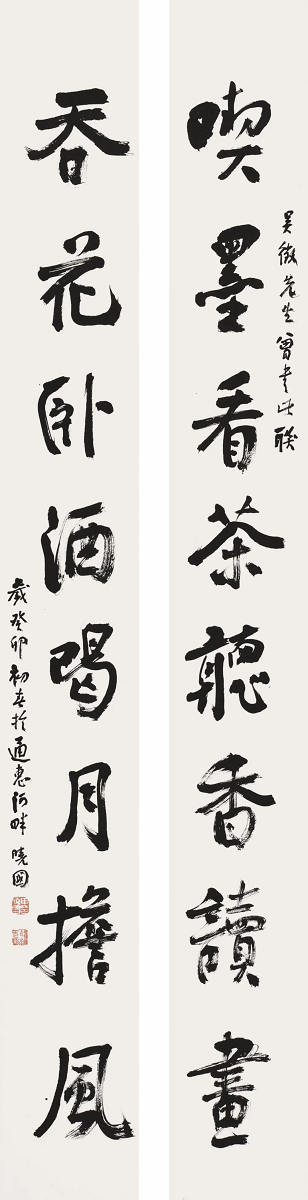 吴徵先生曾书此聯
喫墨看茶聽香讀畫
吞花卧酒喝月擔風
歲癸卯初春於通惠河畔 曉國